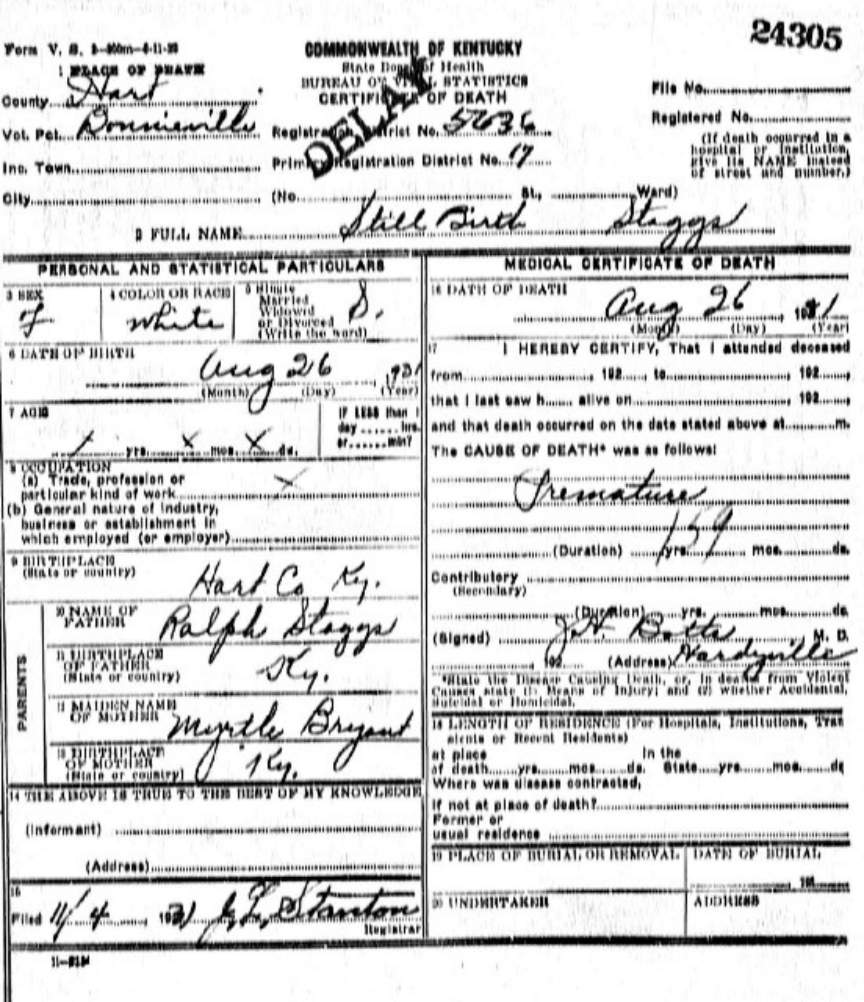 24305
COMMONWEALTH OF KENTUCKY
State Dept. of Health
BUREAU OF VITAL STATISTICS
CERTIFICATE OF DEATH
DELAY
1 PLACE OF DEATH
County Hart
Vot. Pct. Bonnieville Registration District No. 5636
Inc. Town Primary Registration District No. 17
City (No. St. Ward)
File No.
Registered No.
(If death occurred in a
hospital or institution,
give its NAME instead
of street and number.)
2 FULL NAME Still Birth Staggs
PERSONAL AND STATISTICAL PARTICULARS
3 SEX
f
4 COLOR OR RACE
white
5 Single
Married
Widowed
or Divorced
(Write the word)
S.
6 DATE OF BIRTH
Aug 26 1931
(Month) (Day) (Year)
7 AGE
x yrs. x mos. x ds.
IF LESS than 1
day hrs.
or min?
8 OCCUPATION
(a) Trade, profession or
particular kind of work x
(b) General nature of industry,
business or establishment in
which employed (or employer)
9 BIRTHPLACE
(State or country)
Hart Co Ky.
PARENTS
10 NAME OF
FATHER
Ralph Staggs
11 BIRTHPLACE
OF FATHER
(State or country)
Ky.
12 MAIDEN NAME
OF MOTHER
Myrtle Bryant
13 BIRTHPLACE
OF MOTHER
(State or country)
Ky.
14 THE ABOVE IS TRUE TO THE BEST OF MY KNOWLEDGE
(Informant)
(Address)
15
Filed 11/4 1931 J. L. Stanton
Registrar
MEDICAL CERTIFICATE OF DEATH
16 DATE OF DEATH
Aug 26, 1931
(Month) (Day) (Year)
17 I HEREBY CERTIFY, That I attended deceased
from 192 to 192
that I last saw h alive on 192
and that death occurred on the date stated above at m.
The CAUSE OF DEATH* was as follows:
Premature
159
(Duration) yrs. mos. ds.
Contributory
(Secondary)
(Duration) yrs. mos. ds.
(Signed) J. H. Botts M. D.
192 (Address) Hardyville
*State the Disease Causing Death, or, in deaths from Violent
Causes state (1) Means of Injury; and (2) whether Accidental,
Suicidal or Homicidal.
18 LENGTH OF RESIDENCE (For Hospitals, Institutions, Tran
sients or Recent Residents)
at place In the
of death yrs. mos. ds. State yrs. mos. ds
Where was disease contracted,
if not at place of death?
Former or
usual residence
19 PLACE OF BURIAL OR REMOVAL
DATE OF BURIAL
191
20 UNDERTAKER
ADDRESS